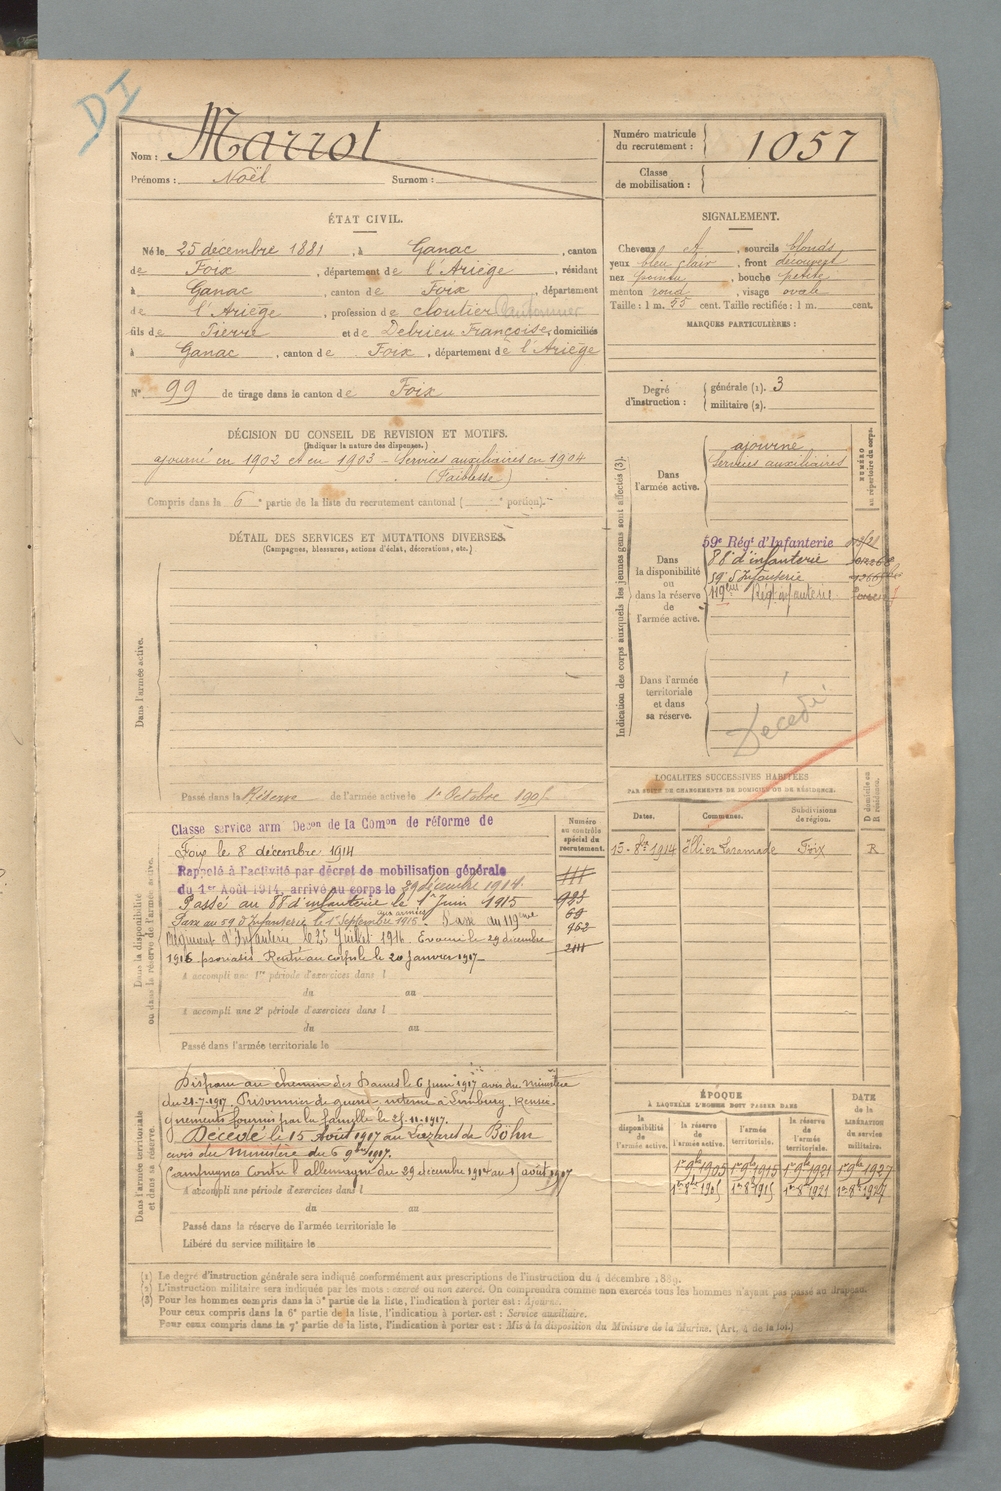 DI
Nom : Marrot
Prénoms : Noël Surnom :
Numéro matricule du recrutement : 1057
Classe de mobilisation :
ÉTAT CIVIL.
Né le 25 décembre 1881, à Ganac, canton
de Foix, département de l'Ariège, résidant
à Ganac, canton de Foix, département
de l'Ariège, profession de cloutier Cantonnier
fils de Pierre et de Debrieu Françoise, domiciliés
à Ganac, canton de Foix, département de l'Ariège
N° 99 de tirage dans le canton de Foix
SIGNALEMENT.
Cheveux A, sourcils blonds
yeux bleu clair, front découvert
nez pointu, bouche petite
menton rond, visage ovale
Taille : 1 m. 55 cent. Taille rectifiée : 1 m. cent.
MARQUES PARTICULIÈRES :
Degré d'instruction : générale (1). 3
militaire (2).
DÉCISION DU CONSEIL DE REVISION ET MOTIFS.
(Indiquer la nature des dispenses.)
ajourné en 1902 et en 1903 - Services auxiliaires en 1904
(Faiblesse)
Compris dans la 6e partie de la liste du recrutement cantonal ( e portion).
DÉTAIL DES SERVICES ET MUTATIONS DIVERSES.
(Campagnes, blessures, actions d'éclat, décorations, etc.)
Dans l'armée active.
Passé dans la Réserve de l'armée active le 1er Octobre 1905
Indication des corps auxquels les jeunes gens sont affectés (3).
NUMÉRO au répertoire du corps.
Dans l'armée active.
ajourné
Services auxiliaires
Dans la disponibilité ou dans la réserve de l'armée active.
59e Régt d'Infanterie
88e d'infanterie
59e d'Infanterie
119ème Régt infanterie
Dans l'armée territoriale et dans sa réserve.
Décédé
LOCALITÉS SUCCESSIVES HABITÉES
PAR SUITE DE CHANGEMENTS DE DOMICILE OU DE RÉSIDENCE.
Dates. Communes. Subdivisions de région. D domicile ou R résidence.
15-8bre 1914 Illier Laramade Foix R
Dans la disponibilité ou dans la réserve de l'armée active.
Numéro au contrôle spécial du recrutement.
Classé service armé Déc.on de la Com.on de réforme de
Foix le 8 décembre 1914
Rappelé à l'activité par décret de mobilisation générale
du 1er Août 1914, arrivé au corps le 29 décembre 1914.
Passé au 88e d'infanterie le 1er Juin 1915
Passé au 59 d'Infanterie le 1er Septembre 1915 aux armées Passé au 119ème
Régiment d'Infanterie le 23 Juillet 1916. Evacué le 29 décembre
1916 psoriasis Rentré au corps le 20 Janvier 1917
A accompli une 1re période d'exercices dans l
du au
A accompli une 2e période d'exercices dans l
du au
Passé dans l'armée territoriale le
Dans l'armée territoriale et dans sa réserve.
Disparu au chemin des Dames le 6 juin 1917 avis du ministère
du 21-7-1917. Prisonnier de guerre interné à Limburg. Rensei-
gnements fournis par la famille le 25-11-1917.
Décédé le 15 Août 1917 au Lazaret de Böhn
avis du ministère du 6 9bre 1917.
Campagnes Contre l'allemagne du 29 décembre 1914 au 15 août 1917
A accompli une période d'exercices dans l
du au
Passé dans la réserve de l'armée territoriale le
Libéré du service militaire le
ÉPOQUE
À LAQUELLE L'HOMME DOIT PASSER DANS
la disponibilité de l'armée active. la réserve de l'armée active. l'armée territoriale. la réserve de l'armée territoriale.
DATE de la LIBÉRATION du service militaire.
1er 9bre 1905 1er 9bre 1915 1er 9bre 1921 1er 9bre 1927
1er 8bre 1905 1er 8bre 1915 1er 8bre 1921 1er 8bre 1927
(1) Le degré d'instruction générale sera indiqué conformément aux prescriptions de l'instruction du 4 décembre 1889.
(2) L'instruction militaire sera indiquée par les mots : exercé ou non exercé. On comprendra comme non exercés tous les hommes n'ayant pas passé au drapeau.
(3) Pour les hommes compris dans la 5e partie de la liste, l'indication à porter est : Ajourné.
Pour ceux compris dans la 6e partie de la liste, l'indication à porter est : Service auxiliaire.
Pour ceux compris dans la 7e partie de la liste, l'indication à porter est : Mis à la disposition du Ministre de la Marine. (Art. 4 de la loi.)